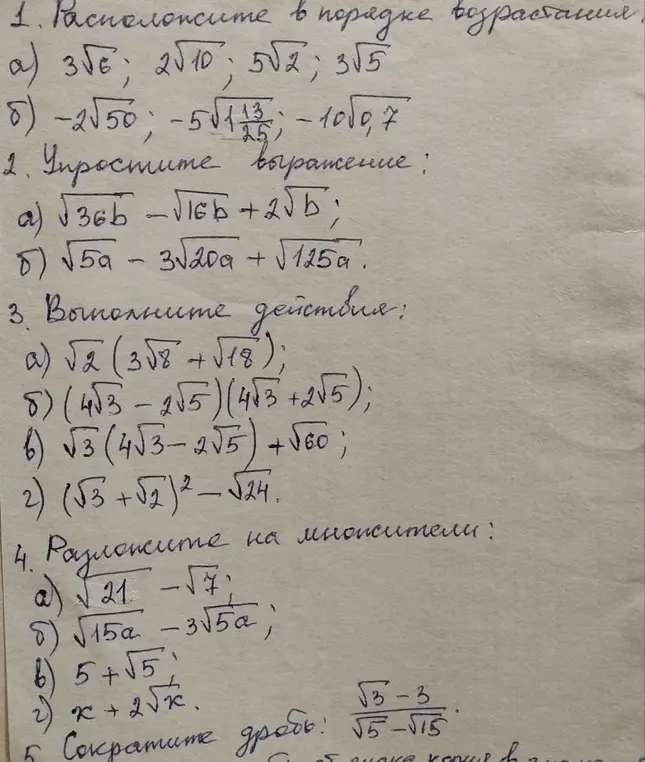 1. Расположите в порядке возрастания
а) 3√6; 2√10; 5√2; 3√5
б) -2√50; -5√(1 13/25); -10√0,7
2. Упростите выражение:
а) √36b - √16b + 2√b;
б) √5a - 3√20a + √125a.
3. Выполните действия:
а) √2 (3√8 + √18);
б) (4√3 - 2√5)(4√3 + 2√5);
в) √3 (4√3 - 2√5) + √60;
г) (√3 + √2)² - √24.
4. Разложите на множители:
а) √21 - √7;
б) √15a - 3√5a;
в) 5 + √5;
г) x + 2√x.
5. Сократите дробь: (√3 - 3)/(√5 - √15).